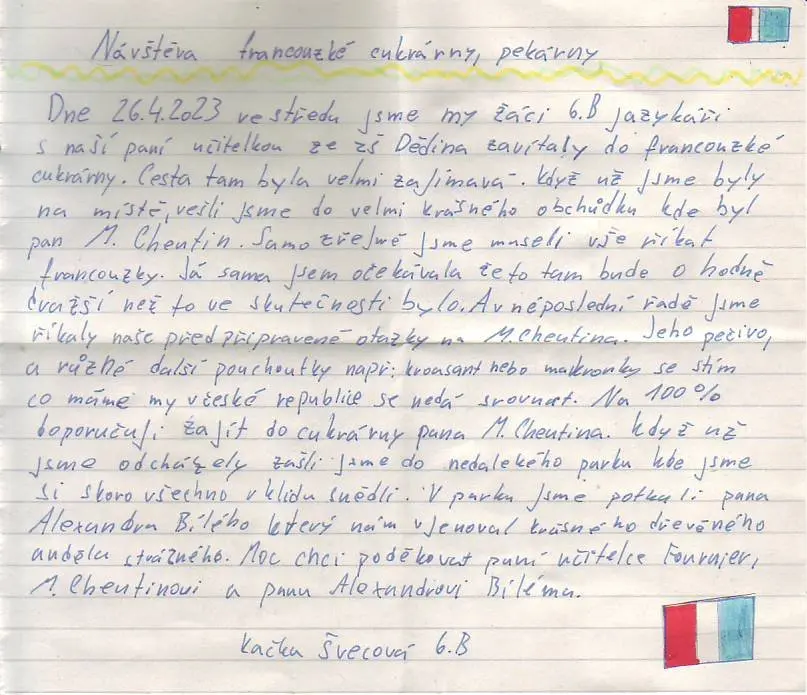 Návštěva francouzké cukrárny, pekárny
Dne 26.4.2023 ve středu jsme my žáci 6.B jazykáři
s naší paní učitelkou ze zš Dědina zavítaly do francouzké
cukrárny. Cesta tam byla velmi zajímavá. Když už jsme byly
na místě, vešli jsme do velmi krásného obchůdku kde byl
pan M. Cheutin. Samo zřejmě jsme museli vše říkat
francouzky. Já sama jsem očekávala že to tam bude o hodně
dražší než to ve skutečnosti bylo. A v neposlední řadě jsme
říkaly naše před připravené otázky na M. Cheutina. Jeho pečivo,
a různé další pouchoutky např: kroasant nebo makronky se stím
co máme my včeské republice se nedá srovnat. Na 100%
doporučuji zajít do cukrárny pana M. Cheutina. Když už
jsme odcházely zašli jsme do nedalekého parku kde jsme
si skoro všechno v klidu snědli. V parku jsme potkali pana
Alexandra Bílého který nám vjenoval krásného dřevěného
anděla strážného. Moc chci poděkovat paní učitelce Fournier,
M. Cheutinovi a panu Alexandrovi Bílému.
Kačka Švecová 6.B